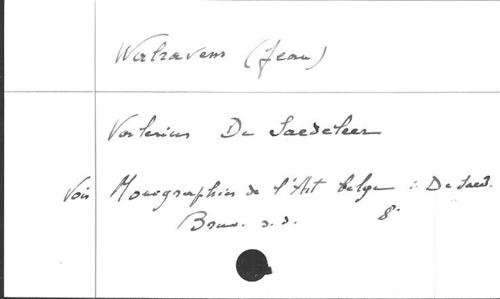 Walravens (Jean)
Valerius De Saedeleer
Voir Monographies de l'Art belge : De Saed.
Brux. s. d. 8°